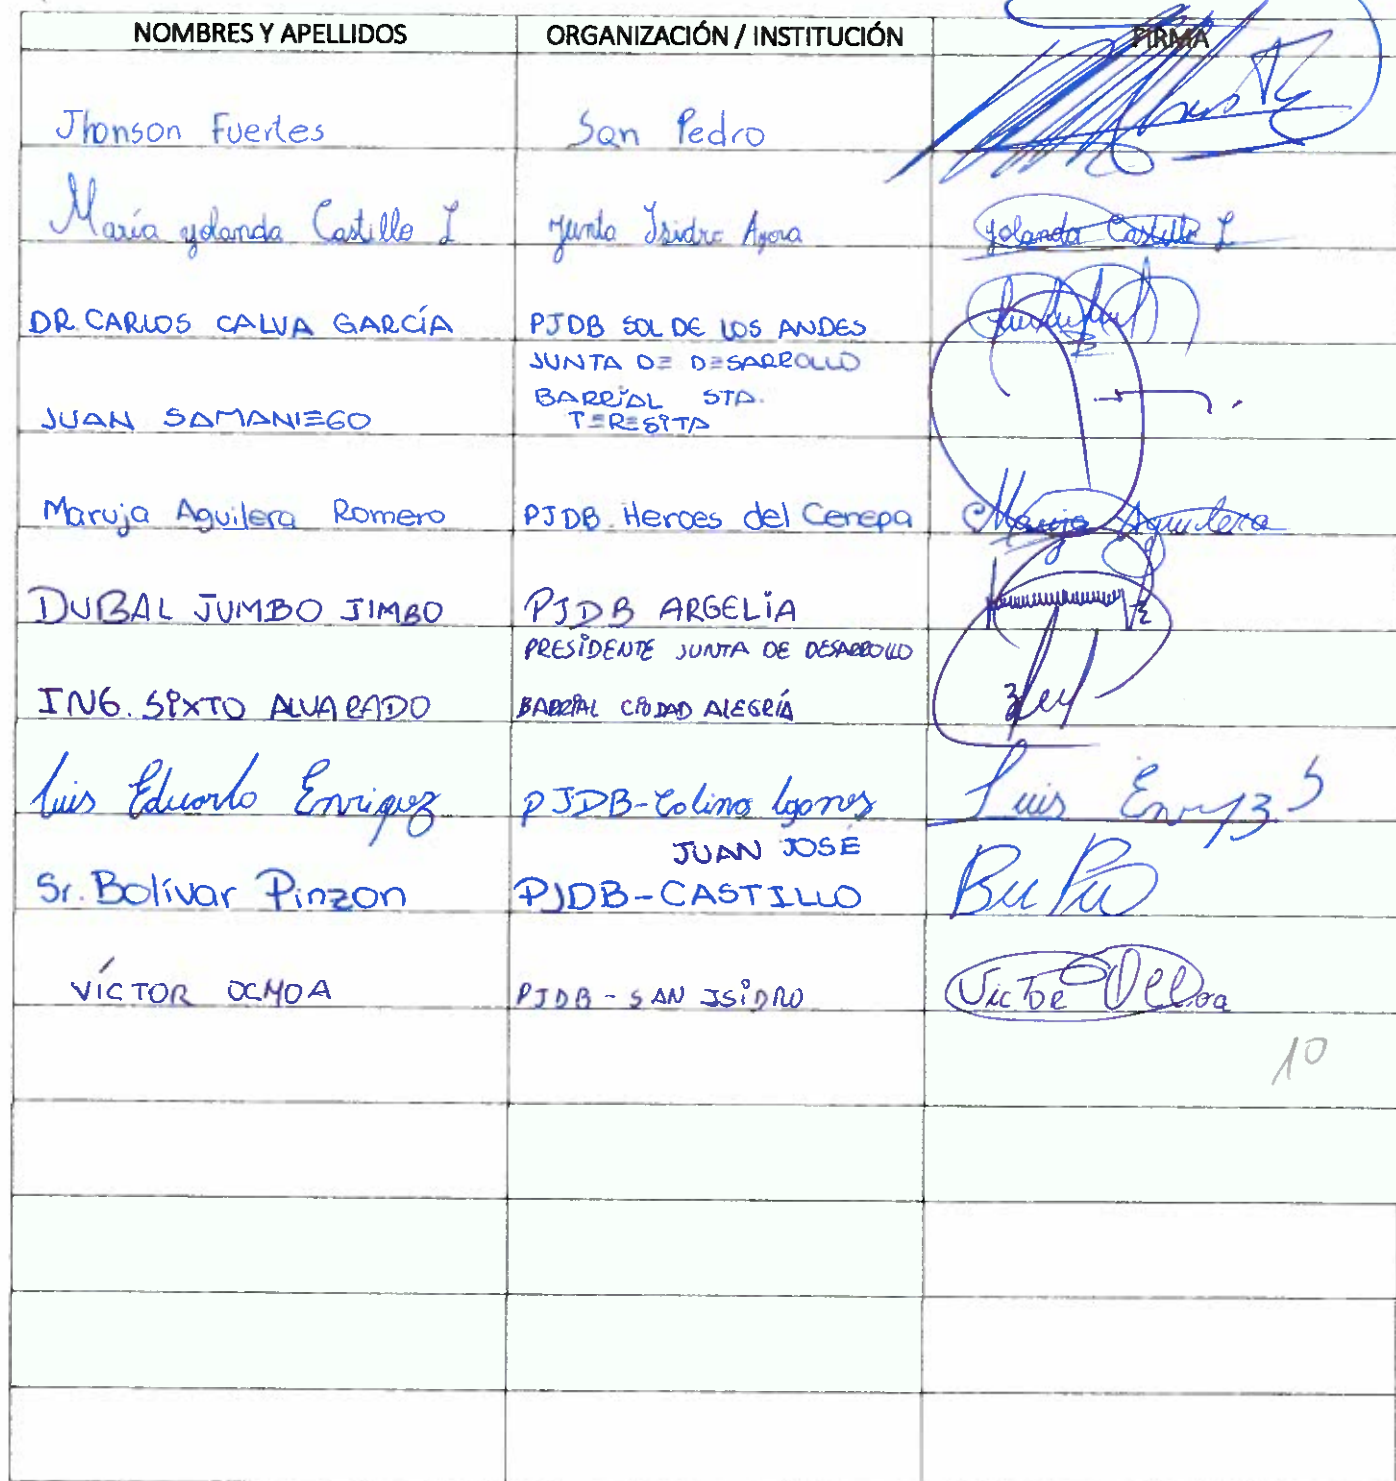 NOMBRES Y APELLIDOS ORGANIZACIÓN / INSTITUCIÓN FIRMA
Jhonson Fuertes San Pedro
María yolanda Castillo L Junta Isidro Ayora Yolanda Castillo L
DR. CARLOS CALVA GARCÍA PJDB SOL DE LOS ANDES
JUNTA DE DESARROLLO
BARRIAL STA.
JUAN SAMANIEGO TERESITA
Maruja Aguilera Romero PJDB Heroes del Cenepa Maruja Aguilera
DUBAL JUMBO JIMBO PJDB ARGELIA
PRESIDENTE JUNTA DE DESARROLLO
ING. SIXTO ALVARADO BARRIAL CIUDAD ALEGRÍA
Luis Eduardo Enriquez PJDB-Colina Luis
JUAN JOSÉ
Sr. Bolívar Pinzon PJDB-CASTILLO
VÍCTOR OCHOA PJDB - SAN ISIDRO Victor
10